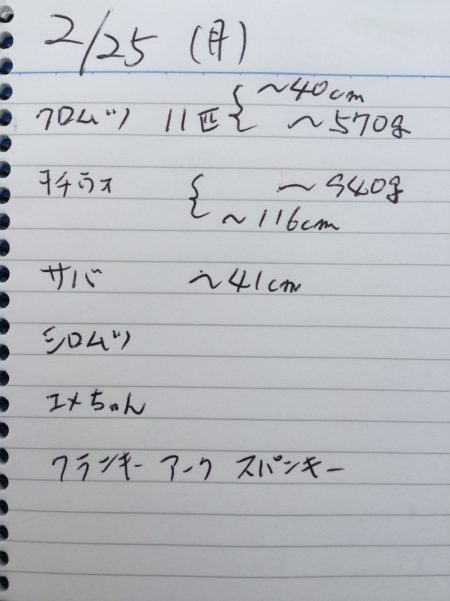 2/25 (月)
クロムツ 11匹 { ~40cm
~570g
タチウオ { ~940g
~116cm
サバ ~41cm
シロムツ
ユメちゃん
クランキー アーク スパンキー